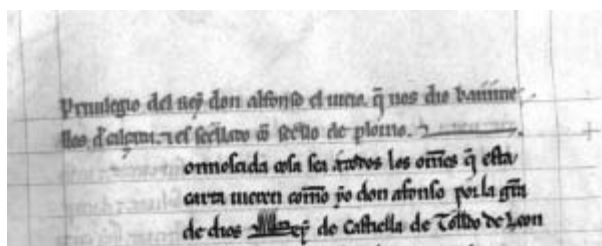 Priuilegio del rey don alfonso el uieio. q̃ nos dio
llos d'alçeçar. seello de plomo.
onnosçida cosa sea a todos los om̃es q̃ esta
carta uieren com̃o yo don alfonso por la grã
de dios Rey de Castiella de Toledo de Leon